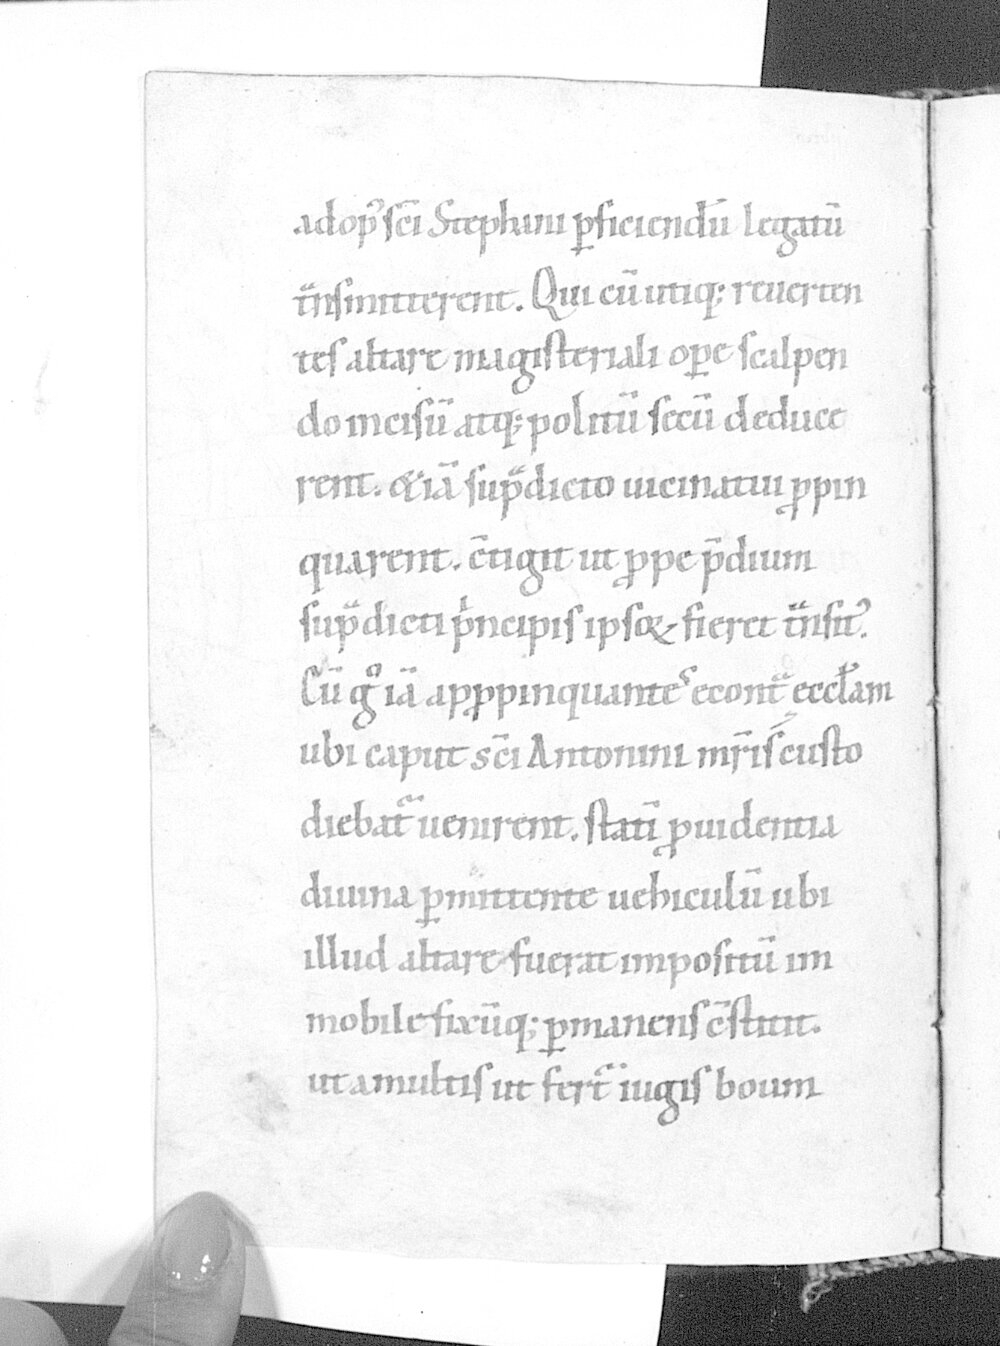 adop᷒ sc̄i Stephani ꝑficiendū legatū
tͣnsmitterent. Qui cū utiq; reuerten
tes altare magisteriali oꝑe scalpen
do incisū atq; politū secū deduce
rent. & iā supͣdicto uicinatui ꝓpin
quarent. c̄tigit ut ꝓpe p̄dium
supͣdicti pͥncipis ipsoꝝ fieret tͣnsit᷒.
Cū gͦ iā apꝓpinquantes econtͣ eccl̄am
ubi caput sc̄i Antonini mr̄is custo
diebat᷑ uenirent. statī ꝓuidentia
diuina ꝑmittente uehiculū ubi
illud altare fuerat impositū im
mobile fixūq; ꝑmanens c̄stitit.
ut a multis ut fert᷑ iugis boum